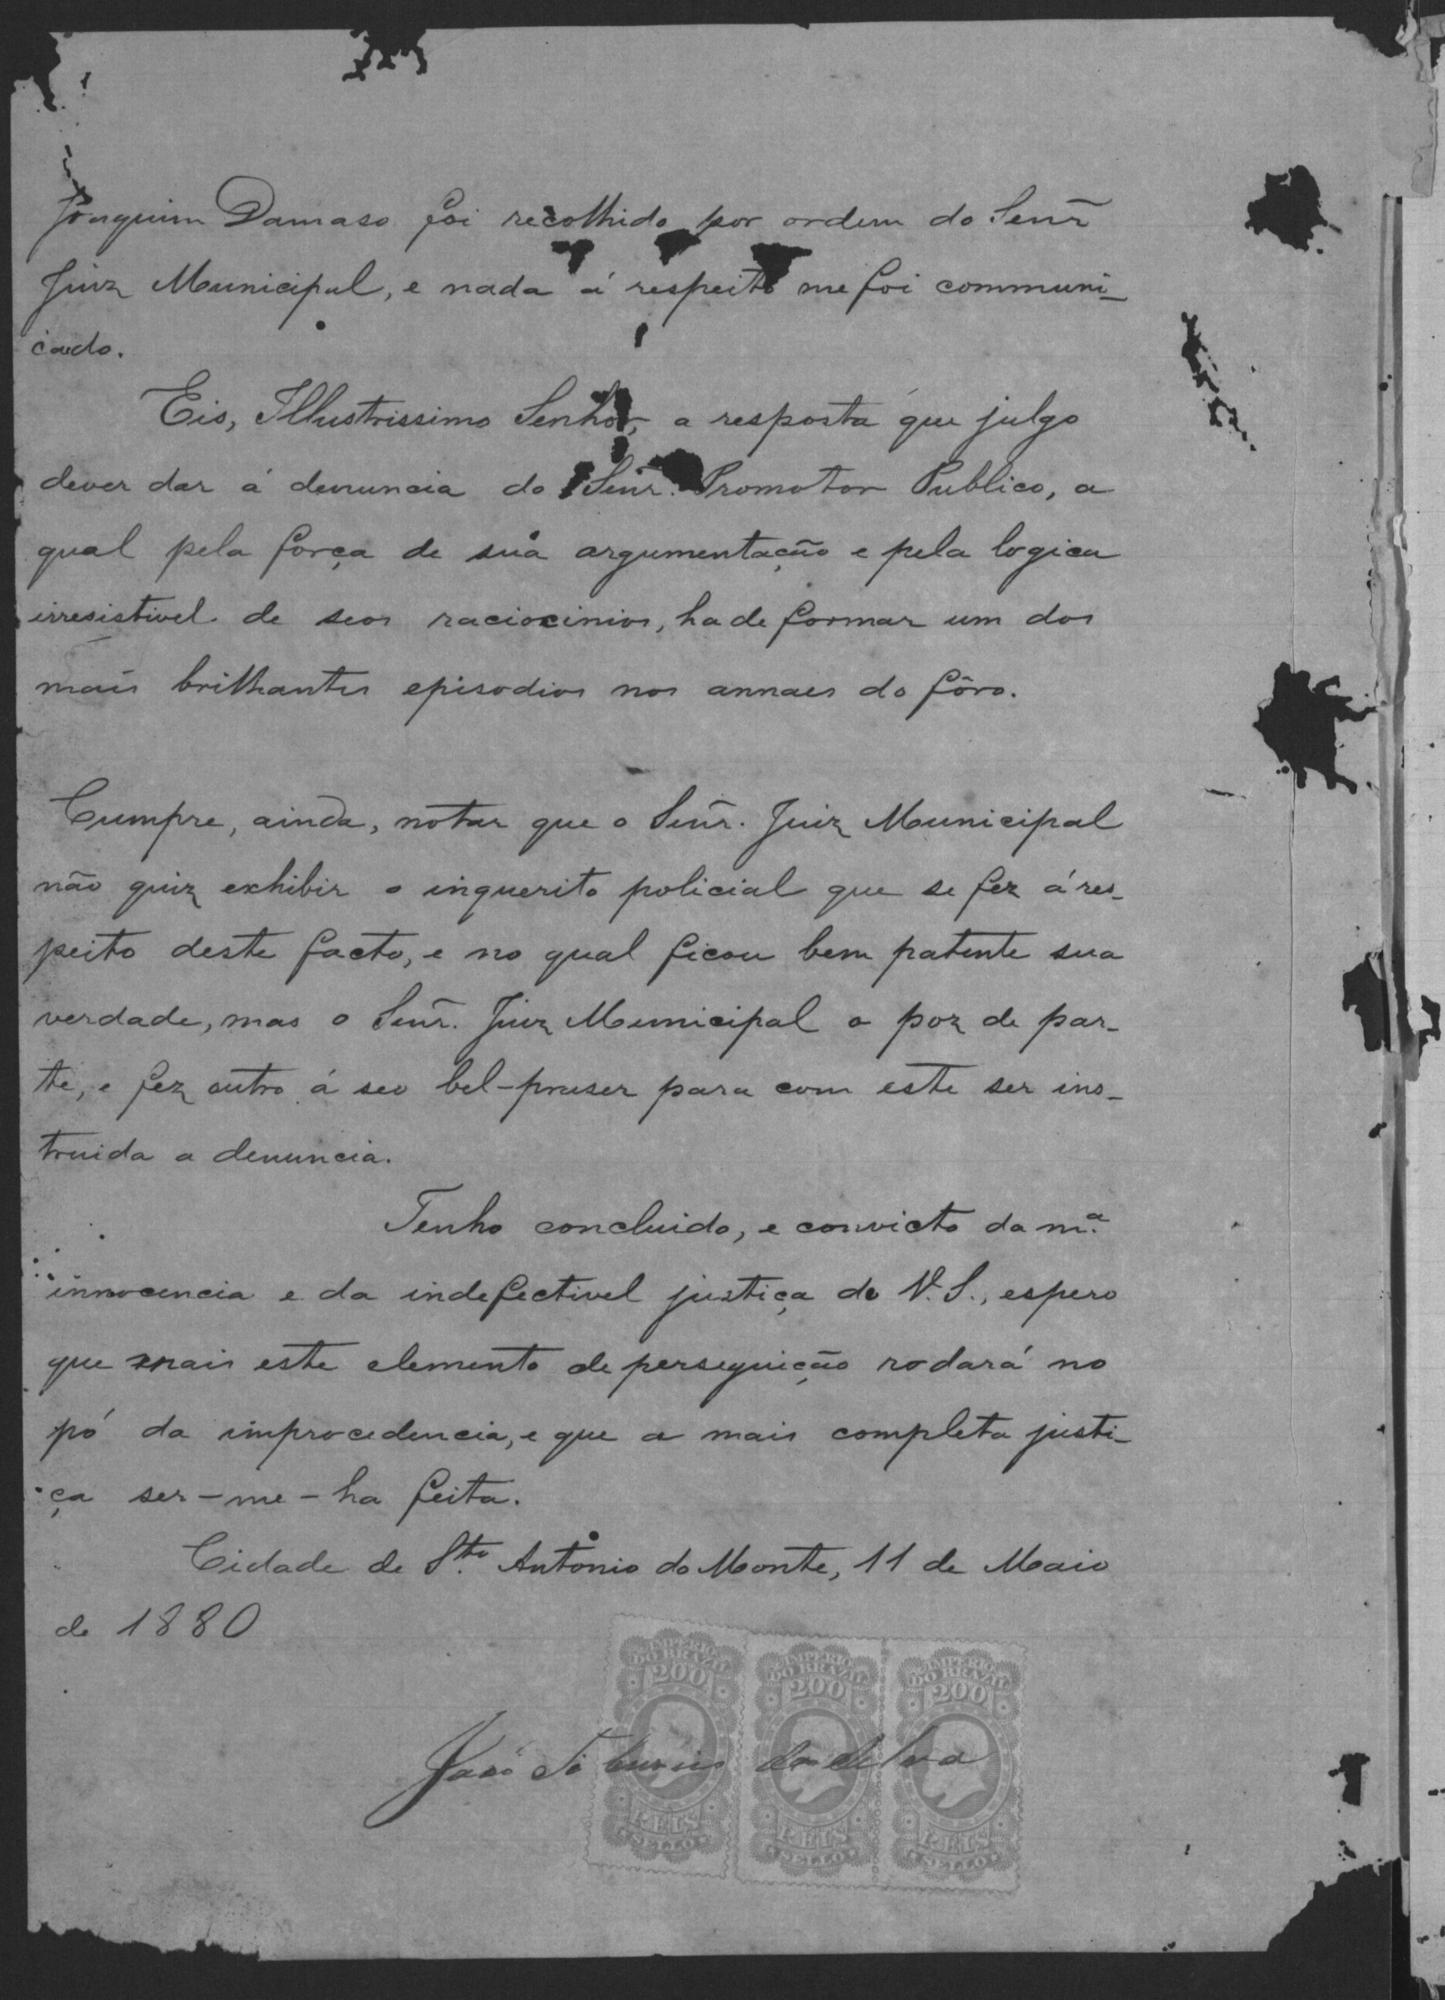 Joaquim Damaso foi recolhido por ordem do Senr̃
Juiz Municipal, e nada á respeito me foi communi-
cado.
Eis, Illustrissimo Senhor, a resposta que julgo
dever dar á denuncia do Senr̃. Promotor Publico, a
qual pela força de sua argumentação e pela logica
irresistivel de seos raciocinios, ha de formar um dos
mais brilhantes episodios nos annaes do fôro.
Cumpre, ainda, notar que o Senr̃. Juiz Municipal
não quiz exhibir o inquerito policial que se fez á res-
peito deste facto, e no qual ficou bem patente sua
verdade, mas o Senr̃. Juiz Municipal o poz de par-
te, e fez outro á seo bel-praser para com este ser ins-
truida a denuncia.
Tenho concluido, e convicto da mª.
innocencia e da indefectivel justiça de V. S., espero
que mais este elemento de perseguição rodará no
pó da improcedencia, e que a mais completa justi-
ça ser-me-ha feita.
Cidade de Sto. Antonio do Monte, 11 de Maio
de 1880
IMPERIO DO BRAZIL 200 IMPERIO DO BRAZIL 200 IMPERIO DO BRAZIL 200
José Tiburcio da Silva
REIS SELLO REIS SELLO REIS SELLO